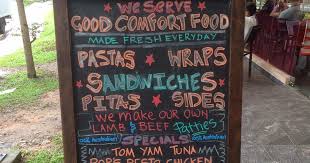 WE SERVE
GOOD COMFORT FOOD
MADE FRESH EVERYDAY
PASTAS * WRAPS
SANDWICHES
PITAS * SIDES
WE MAKE OUR OWN
LAMB & BEEF Patties
SPECIALS
TOM YAM TUNA
PESTO CHICKEN